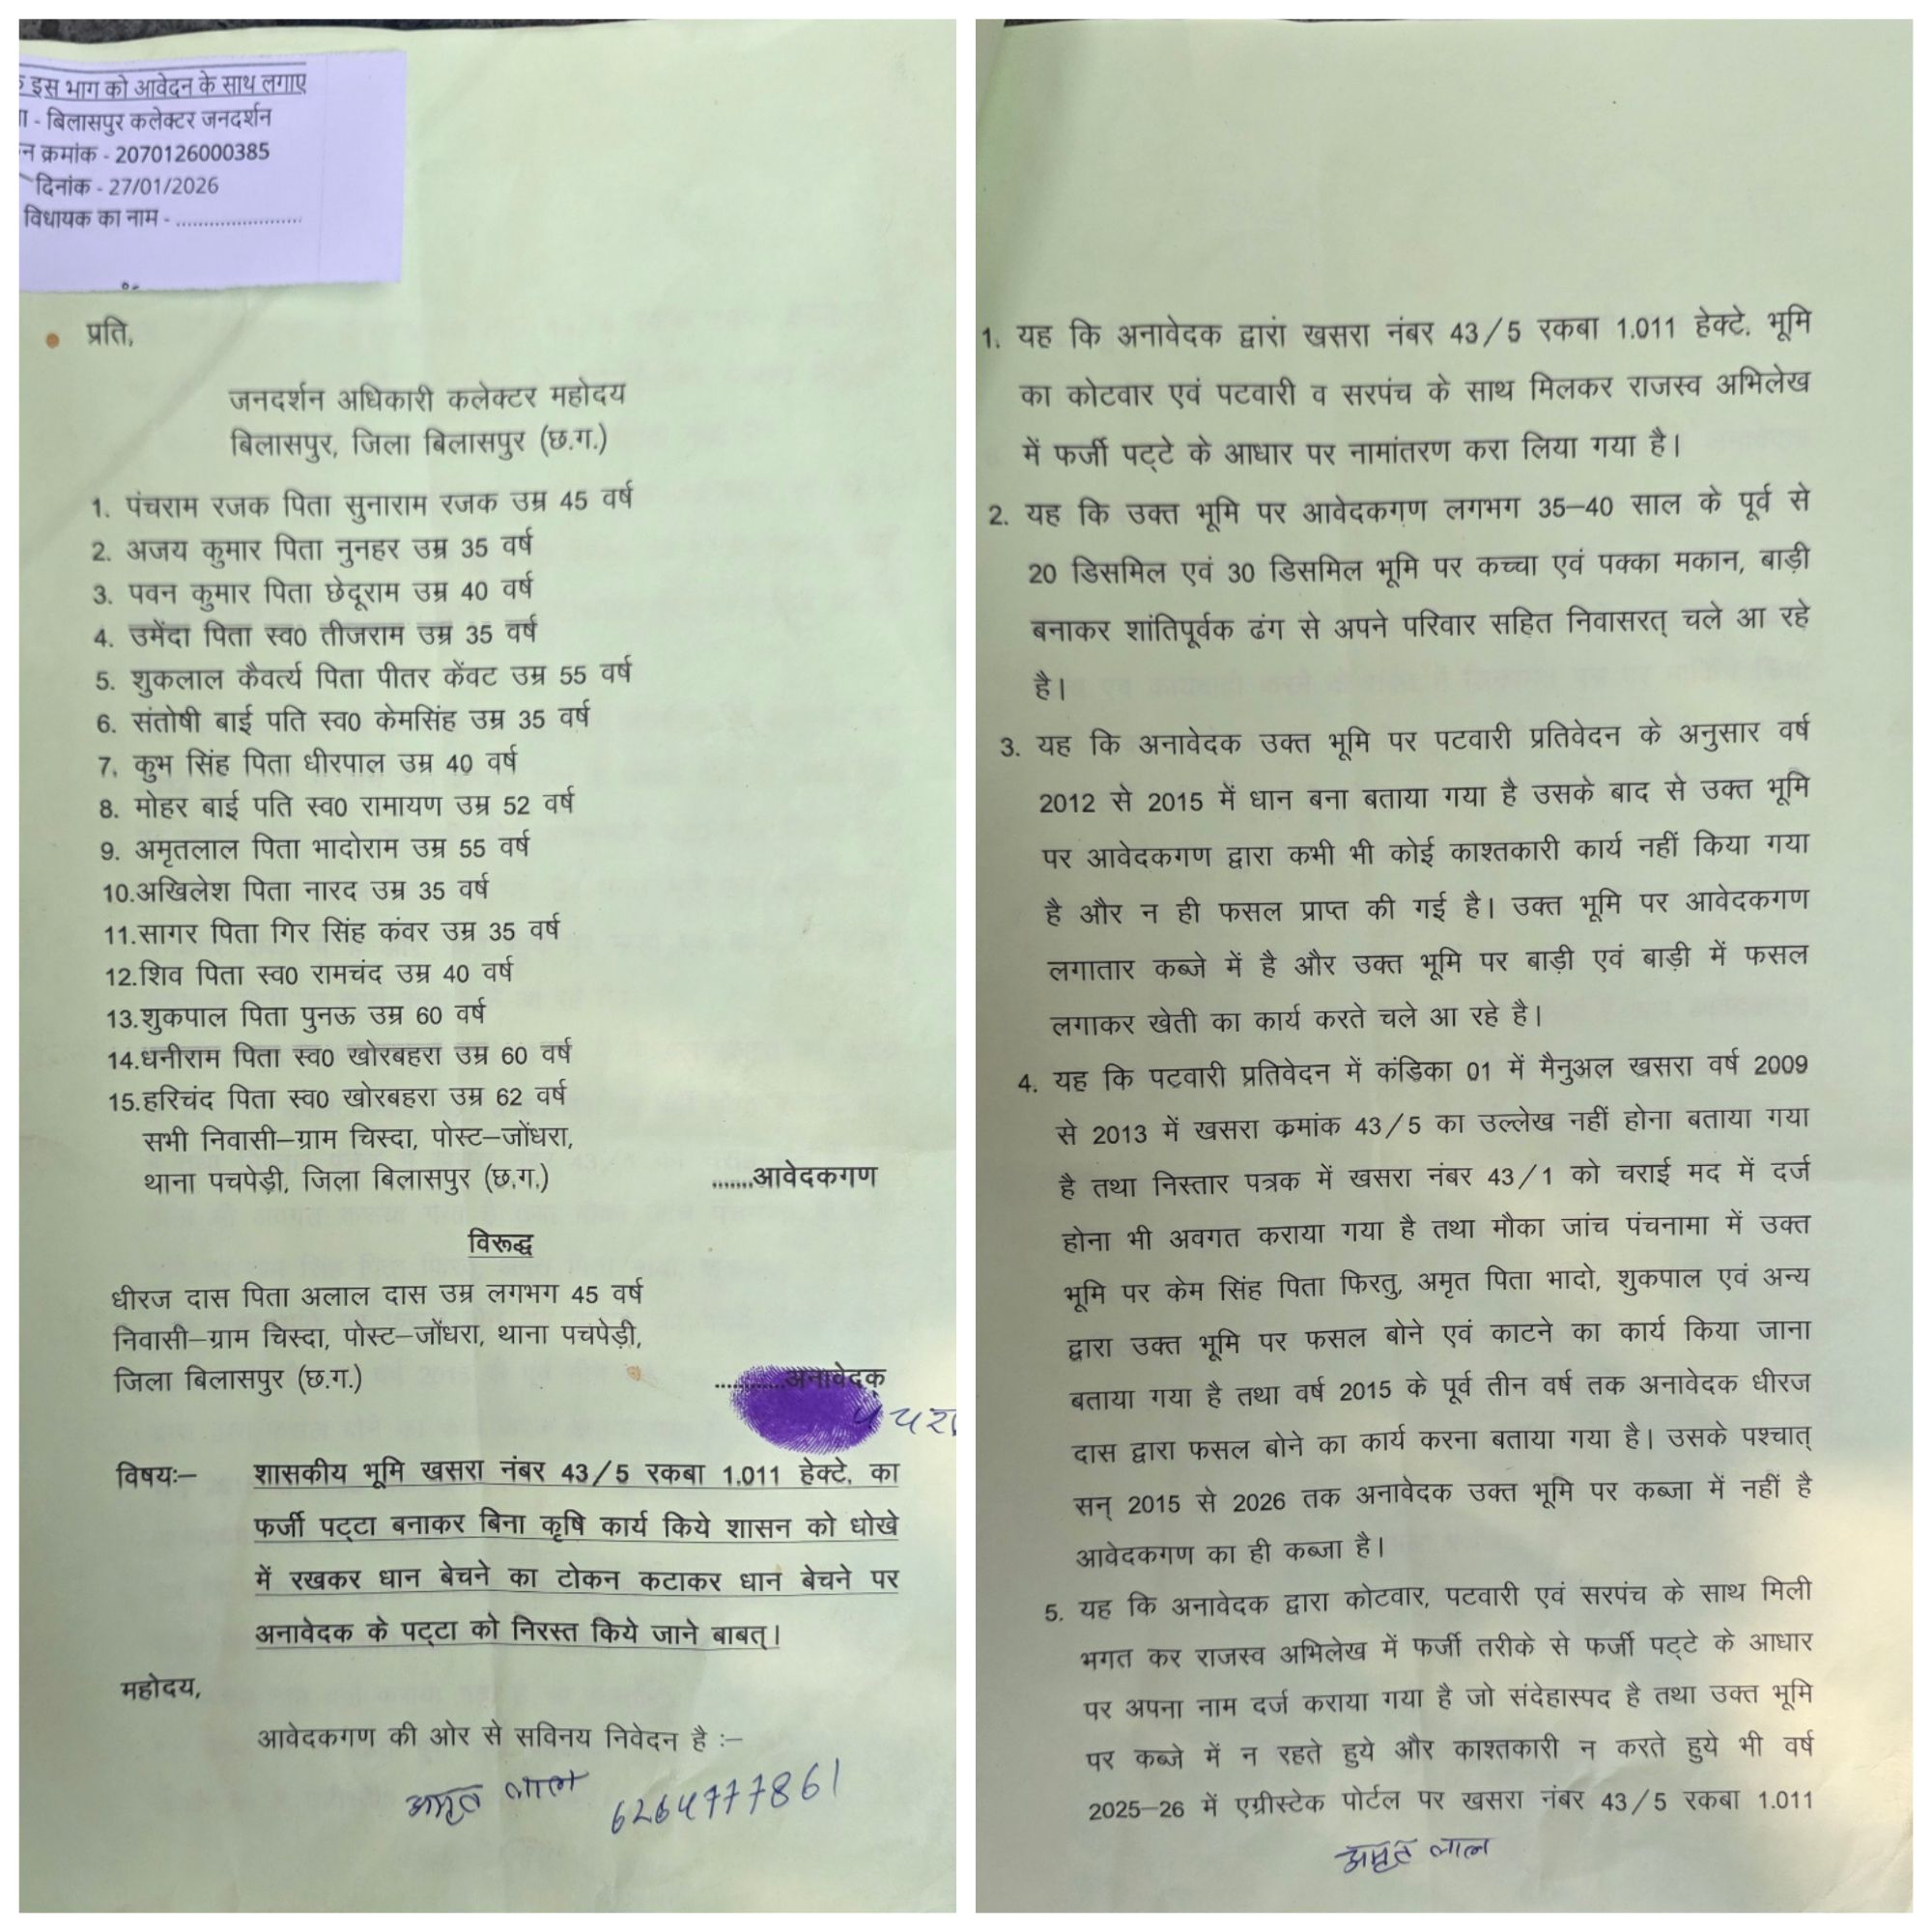 इस भाग को आवेदन के साथ लगाए
- बिलासपुर कलेक्टर जनदर्शन
न क्रमांक - 2070126000385
दिनांक - 27/01/2026
विधायक का नाम - ........................
प्रति,
जनदर्शन अधिकारी कलेक्टर महोदय
बिलासपुर, जिला बिलासपुर (छ.ग.)
1. पंचराम रजक पिता सुनाराम रजक उम्र 45 वर्ष
2. अजय कुमार पिता नुनहर उम्र 35 वर्ष
3. पवन कुमार पिता छेदूराम उम्र 40 वर्ष
4. उमेंदा पिता स्व0 तीजराम उम्र 35 वर्ष
5. शुकलाल कैवर्त्य पिता पीतर केंवट उम्र 55 वर्ष
6. संतोषी बाई पति स्व0 केमसिंह उम्र 35 वर्ष
7. कुभ सिंह पिता धीरपाल उम्र 40 वर्ष
8. मोहर बाई पति स्व0 रामायण उम्र 52 वर्ष
9. अमृतलाल पिता भादोराम उम्र 55 वर्ष
10.अखिलेश पिता नारद उम्र 35 वर्ष
11.सागर पिता गिर सिंह कंवर उम्र 35 वर्ष
12.शिव पिता स्व0 रामचंद उम्र 40 वर्ष
13.शुकपाल पिता पुनऊ उम्र 60 वर्ष
14.धनीराम पिता स्व0 खोरबहरा उम्र 60 वर्ष
15.हरिचंद पिता स्व0 खोरबहरा उम्र 62 वर्ष
सभी निवासी–ग्राम चिस्दा, पोस्ट–जोंधरा,
थाना पचपेड़ी, जिला बिलासपुर (छ.ग.) .......आवेदकगण
विरूद्ध
धीरज दास पिता अलाल दास उम्र लगभग 45 वर्ष
निवासी–ग्राम चिस्दा, पोस्ट–जोंधरा, थाना पचपेड़ी,
जिला बिलासपुर (छ.ग.) ............अनावेदक
विषयः– शासकीय भूमि खसरा नंबर 43/5 रकबा 1.011 हेक्टे. का
फर्जी पट्टा बनाकर बिना कृषि कार्य किये शासन को धोखे
में रखकर धान बेचने का टोकन कटाकर धान बेचने पर
अनावेदक के पट्टा को निरस्त किये जाने बाबत्।
महोदय,
आवेदकगण की ओर से सविनय निवेदन है :–
अमृत लाल 6264777861
1. यह कि अनावेदक द्वारा खसरा नंबर 43/5 रकबा 1.011 हेक्टे. भूमि
का कोटवार एवं पटवारी व सरपंच के साथ मिलकर राजस्व अभिलेख
में फर्जी पट्टे के आधार पर नामांतरण करा लिया गया है।
2. यह कि उक्त भूमि पर आवेदकगण लगभग 35–40 साल के पूर्व से
20 डिसमिल एवं 30 डिसमिल भूमि पर कच्चा एवं पक्का मकान, बाड़ी
बनाकर शांतिपूर्वक ढंग से अपने परिवार सहित निवासरत् चले आ रहे
है।
3. यह कि अनावेदक उक्त भूमि पर पटवारी प्रतिवेदन के अनुसार वर्ष
2012 से 2015 में धान बना बताया गया है उसके बाद से उक्त भूमि
पर आवेदकगण द्वारा कभी भी कोई काश्तकारी कार्य नहीं किया गया
है और न ही फसल प्राप्त की गई है। उक्त भूमि पर आवेदकगण
लगातार कब्जे में है और उक्त भूमि पर बाड़ी एवं बाड़ी में फसल
लगाकर खेती का कार्य करते चले आ रहे है।
4. यह कि पटवारी प्रतिवेदन में कंडिका 01 में मैनुअल खसरा वर्ष 2009
से 2013 में खसरा क्रमांक 43/5 का उल्लेख नहीं होना बताया गया
है तथा निस्तार पत्रक में खसरा नंबर 43/1 को चराई मद में दर्ज
होना भी अवगत कराया गया है तथा मौका जांच पंचनामा में उक्त
भूमि पर केम सिंह पिता फिरतु, अमृत पिता भादो, शुकपाल एवं अन्य
द्वारा उक्त भूमि पर फसल बोने एवं काटने का कार्य किया जाना
बताया गया है तथा वर्ष 2015 के पूर्व तीन वर्ष तक अनावेदक धीरज
दास द्वारा फसल बोने का कार्य करना बताया गया है। उसके पश्चात्
सन् 2015 से 2026 तक अनावेदक उक्त भूमि पर कब्जा में नहीं है
आवेदकगण का ही कब्जा है।
5. यह कि अनावेदक द्वारा कोटवार, पटवारी एवं सरपंच के साथ मिली
भगत कर राजस्व अभिलेख में फर्जी तरीके से फर्जी पट्टे के आधार
पर अपना नाम दर्ज कराया गया है जो संदेहास्पद है तथा उक्त भूमि
पर कब्जे में न रहते हुये और काश्तकारी न करते हुये भी वर्ष
2025–26 में एग्रीस्टेक पोर्टल पर खसरा नंबर 43/5 रकबा 1.011
अमृत लाल